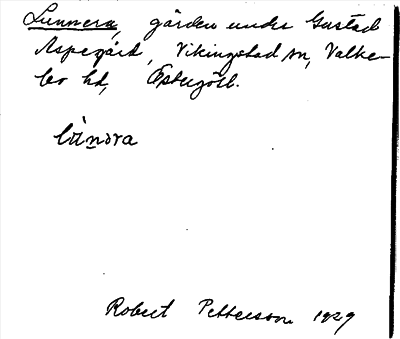 Lunnera, gården under Gustad
Aspegård, Vikingstad sn, Valke-
bo hd, Östergötl.
Robert Petterson 1929